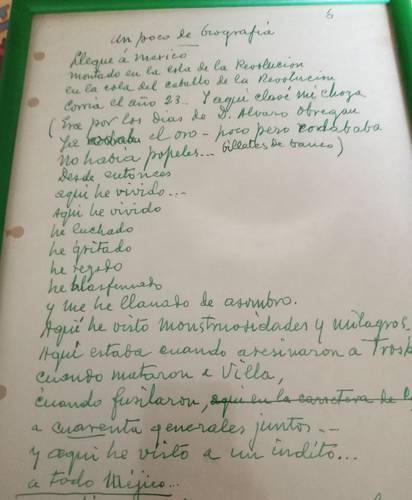 6
Un poco de Geografía
Llegue a Mexico
montado en la cola de la Revolucion
en la cola del caballo de la Revolucion
Corria el año 23... Y aqui clavé mi choza
(Era por los dias de D. Alvaro Obregon
Ya rodaba el oro - poco pero rodababa
No habia papeles... billetes de banco)
Desde entonces
aqui he vivido...
Aqui he vivido
he luchado
he gritado
he
he blasfemado
y me he llenado de asombro.
Aqui he visto monstruosidades y milagros.
Aqui estaba cuando asesinaron a
cuando mataron a Villa,
cuando fusilaron, aqui en la carretera de
a cuarenta generales juntos...
y aqui he visto a un indito...
a todo Méjico...